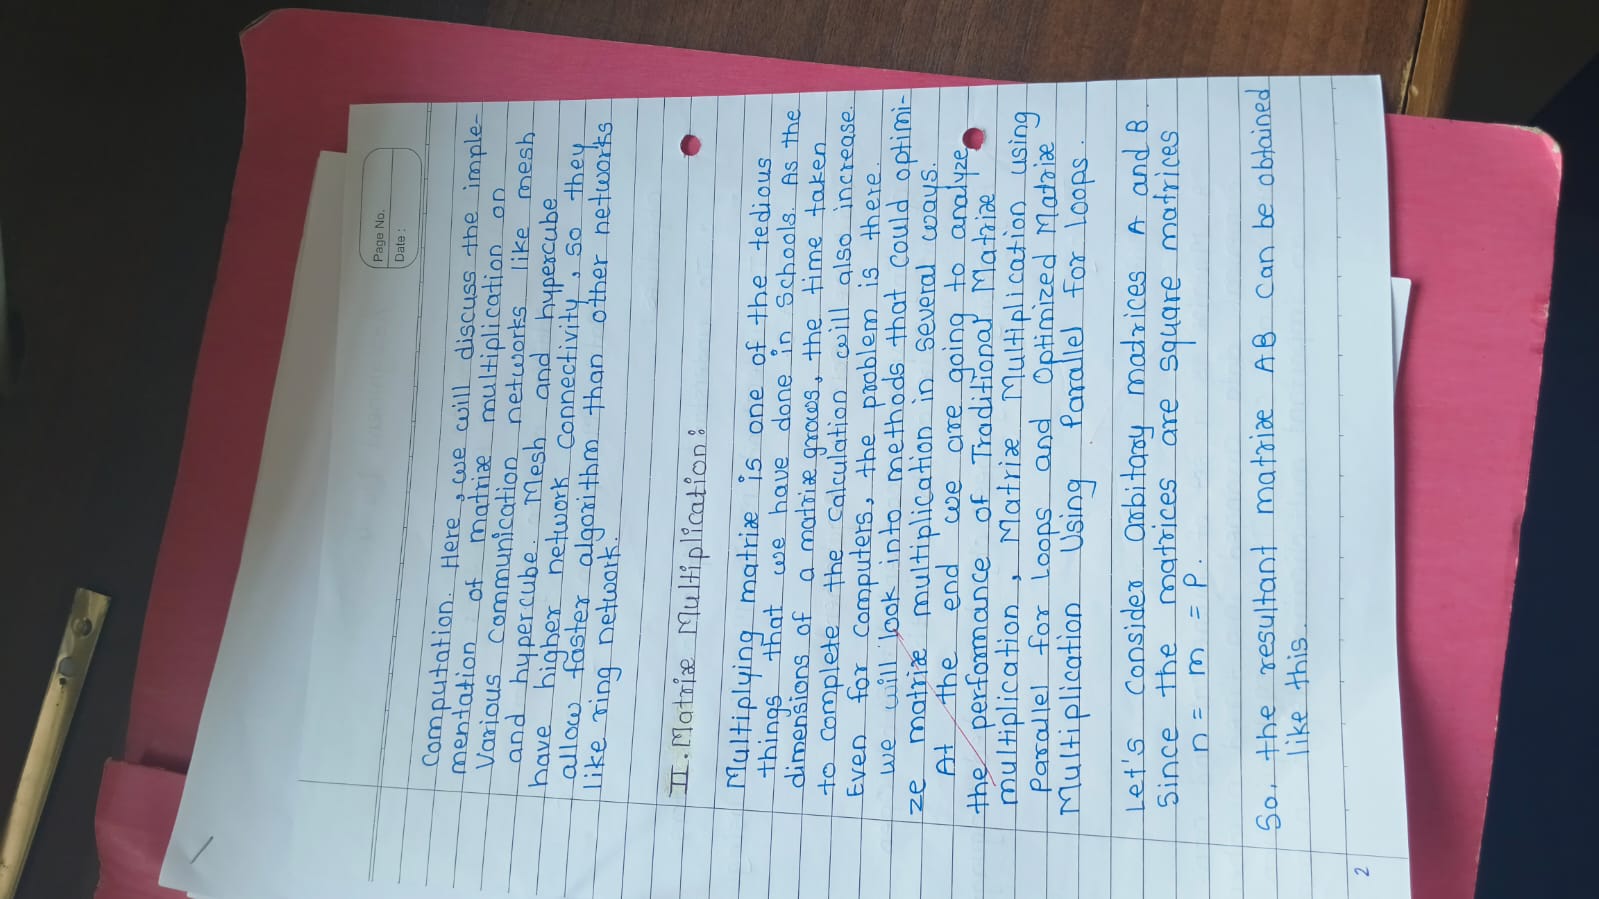 Page No.
Date :
Computation. Here, we will discuss the imple-
mentation of matrix multiplication on
Various Communication networks like mesh
and hypercube. Mesh and hypercube
have higher network connectivity, so they
allow faster algorithm than other networks
like ring network.
II. Matrix Multiplication:
Multiplying matrix is one of the tedious
things that we have done in Schools. As the
dimensions of a matrix grows, the time taken
to complete the Calculation will also increase.
Even for Computers, the problem is there.
we will look into methods that Could optimi-
ze matrix multiplication in several ways.
At the end we are going to analyze
the performance of Traditional Matrix
multiplication, Matrix Multiplication using
Parallel for Loops and Optimized Matrix
Multiplication Using Parallel for Loops.
Let's Consider arbitary matrices A and B.
Since the matrices are square matrices
n = m = P.
So, the resultant matrix AB Can be obtained
like this.
2